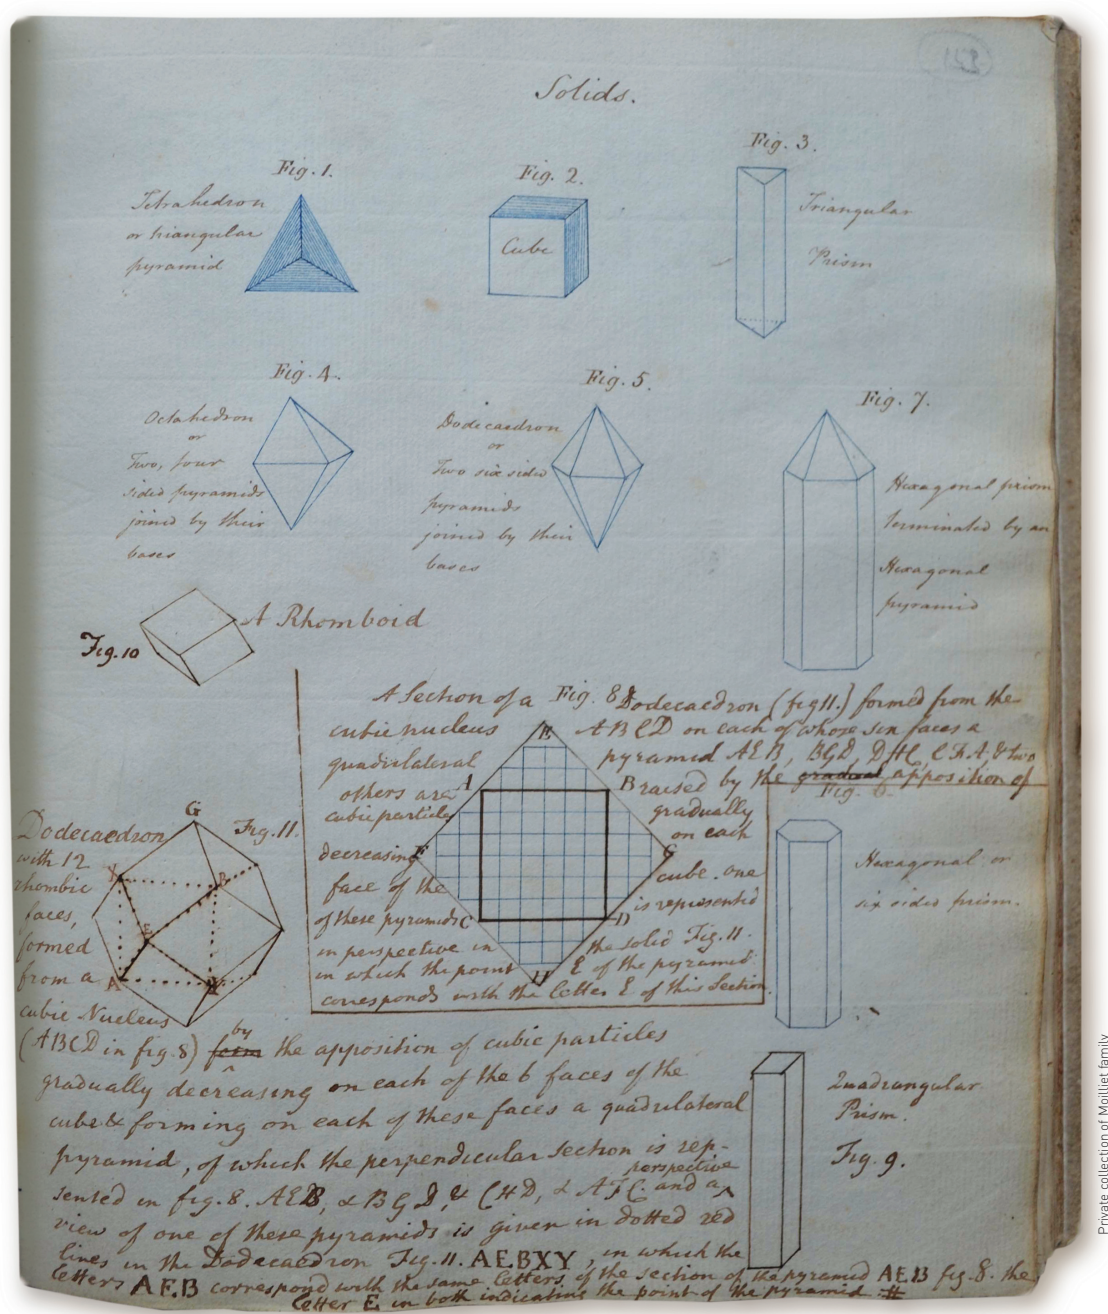 Solids.
Fig. 1.
Tetrahedron
or triangular
pyramid
Fig. 2.
Cube
Fig. 3.
Triangular
Prism
Fig. 4.
Octahedron
or
Two, four
sided pyramids
joined by their
bases
Fig. 5.
Dodecaedron
or
Two six sided
pyramids
joined by their
bases
Fig. 7.
Hexagonal prism
terminated by an
Hexagonal
pyramid
Fig. 10
A Rhomboid
A Section of a Fig. 8 Dodecaedron (fig 11.) formed from the
cubic nucleus ABCD on each of whose six faces a
quadrilateral pyramid AEB, BGD, DHC, CFA, & two
others are raised by the gradual apposition of
cubic particles gradually
decreasing on each
face of the cube. one
of these pyramids is represented
in perspective in the solid Fig. 11.
in which the point E of the pyramid
corresponds with the letter E of this Section.
E
A
B
F
G
C
D
H
Fig. 6.
Hexagonal or
six sided prism.
Dodecaedron
with 12
rhombic
faces,
formed
from a
cubic Nucleus
G
Fig. 11.
B
E
A
(ABCD in fig. 8) form by the apposition of cubic particles
gradually decreasing on each of the 6 faces of the
cube & forming on each of these faces a quadrilateral
pyramid, of which the perpendicular section is rep-
sented in fig. 8. AEB, & BGD, & CHD, & AFC and a perspective
view of one of these pyramids is given in dotted red
lines in the Dodecaedron Fig. 11. AEBXY, in which the
letters AEB correspond with the same letters of the section of the pyramid AEB fig. 8. the
letter E in both indicating the point of the pyramid. #
Quadrangular
Prism.
Fig. 9.
Private collection of Moilliet family